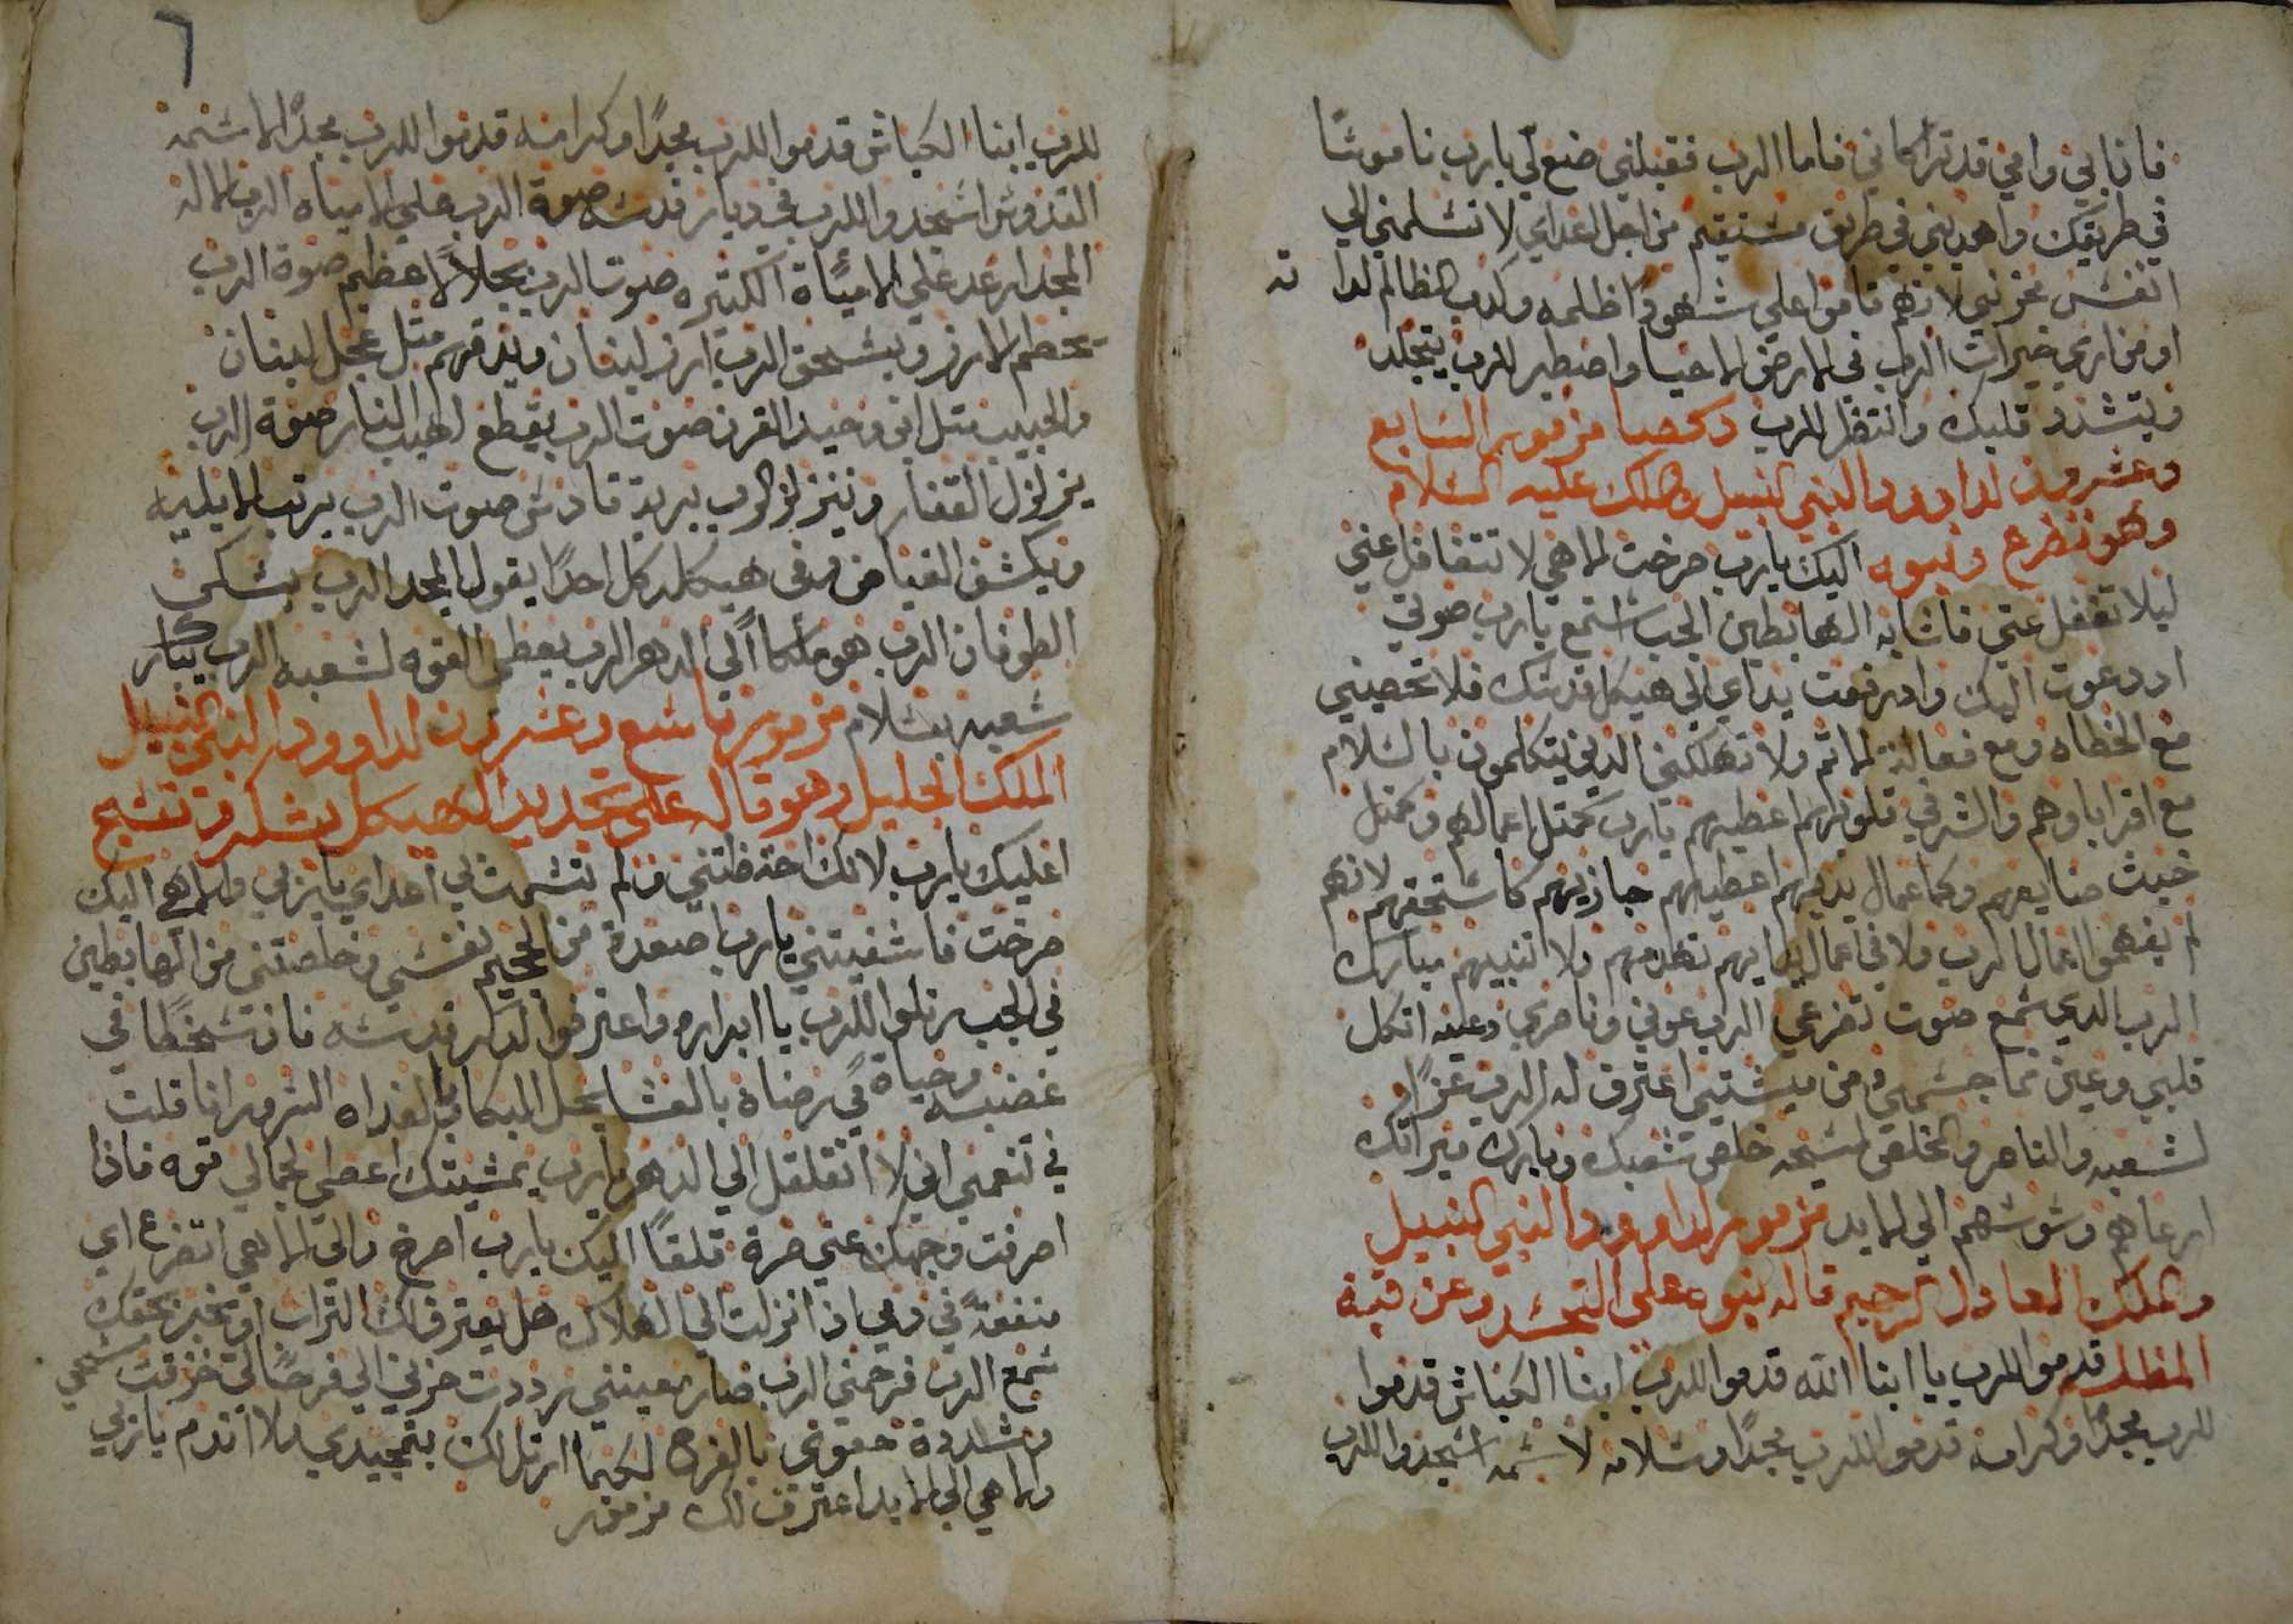 فان ابي وامي قد تراكاني فاما الرب فقبلني ضع لي يارب ناموسًا
في طريقك واهديني في طريق مستقيم من اجل اعداي لا تسلمني الي
انفس محزني لانهم قاموا علي شهود اظلمه وكدب الظالم لدا ته
اومن اري خيرات الرب في الارض الاحيا واصطبر للرب يتجلد
ويتشدد قلبك وانتظر للرب دكصا مزمور السابع
وعشرون لداوود النبي النبيل والملك عليه السلام
وهو تضرع ونبوه اليك يارب صرخت الاهي لا تتغافل عني
ليلا تغفل عني فاشابه الهابطين الجب استمع يارب صوتي
اد دعوت اليك واد رفعت يداي الي هيكل قدسك فلا تحصيني
مع الخطاه ومع فعالة الاثم ولا تهلكني الدين يتكلمون بالسلام
مع اقراباوهم والشر في قلوبهم اعطيهم يارب كمتل اعمالهم وكمتل
خبث صنايعهم وكما اعمال يديهم اعطيهم جازيهم كاستحقهم لانهم
لم يفهموا اعمال الرب ولا في اعمال يدايهم تهدمهم ولا تبنيهم مبارك
الرب الدي سمع صوت تضرعي الرب عوني وناصري وعليه اتكل
قلبي وعين نما جسمي ومن ميشتيي اعترف له الرب عزًا
لشعبه والناصر والمخلص لمسيحه خلص شعبك وبارك ميراتك
ارعاهم وسوسهم الي الابد مزمور لداوود النبي النبيل
والملك العادل الرحيم قاله بنبوه علي التجسد وعن قبة
المظله قدموا للرب يا ابنا الله قدموا للرب ابنا الكباش قدموا
للرب مجدًا وكرامه قدموا للرب مجدًا وسلامه لاسمه اسجدوا للرب
٦
للرب ابنا الكباش قدموا للرب مجدًا وكرامه قدموا للرب مجدًا لاسمه
القدوس اسجدوا للرب في ديار قدسه صوة الرب علي المياه الرب الاله
المجد ارعد علي المياة الكتيره صوت الرب بجلالًا عظيم صوة الرب
تحطم الارز ويسحق الرب ارز لبنان ويدقهم متل عجل لبنان
والحبيب متل ابن وحيد القرن صوت الرب يقطع لهيب النار صوة الرب
يزلزل القفار ويتزلزل الرب برية قادش صوت الرب يرتب الايليه
ويكشف الغياض وفي هيكله كل احدًا يقول المجد الرب يسكن
الطوفان الرب هو ملكا الي الدهر الرب يعطي القوه لشعبه الرب يبارك
شعبه بسلام مزمور تاسع وعشرون لداوود النبي النبيل
الملك الجليل وهو قاله علي تجديد الهيكل يشكر وتسبح
اعليك يارب لانك احتضتني ولم تشمت بي اعداي ياربي والاهي اليك
صرخت فاشفيتني يارب اصعدة من الجحيم نفسي وخلصتني من الهابطين
في الجب رتلوا للرب يا ابراره واعترفوا لدكر قدسه فان سخطًا في
غضبه وحياة في رضاه بالعشا يحل البكا وبالغداه السرور انا قلت
في تنعمي اني لا اتقلقل الي الدهر يارب بمشيتك اعطي لجمالي قوه فاذا
اصرفت وجهك عني صرة قلقًا اليك يارب اصرخ والي الاهي اتضرع اي
منفعةً في دمي اذا نزلت الي الهلاك هل يعترف لك التراب او يخبر بحقك
سمع الرب فرحمني الرب صار معينني رددت حزني الي فرحًا لي خرقت مسحي
وشددة حقوي بالفرح لكيما ارتل لك بتمجيدي ولا اندم ياربي
والاهي الي الابد اعترف لك مزمور